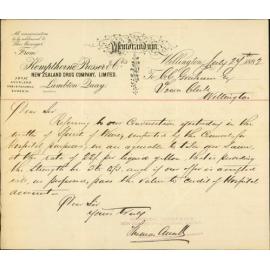 All communications
to be addressed to
The Manager
Memorandum.
From
Kempthorne Prosser & Co's
NEW ZEALAND DRUG COMPANY, LIMITED.
Lambton Quay.
Wellington July 27th 1892
To
Town Clerk
Wellington
Dear Sir
Referring to our Conversation yesterday in the
matter of Spirit of Wine, imported by the Council for
hospital purposes, we are agreeable to take over same,
at the rate of 22/- per liquid gallon that is providing
the Strength be 56 o/p. and if our offer is accepted
will, as proposed, pass the value to credit of Hospital
account.
Dear Sir
Yours truly